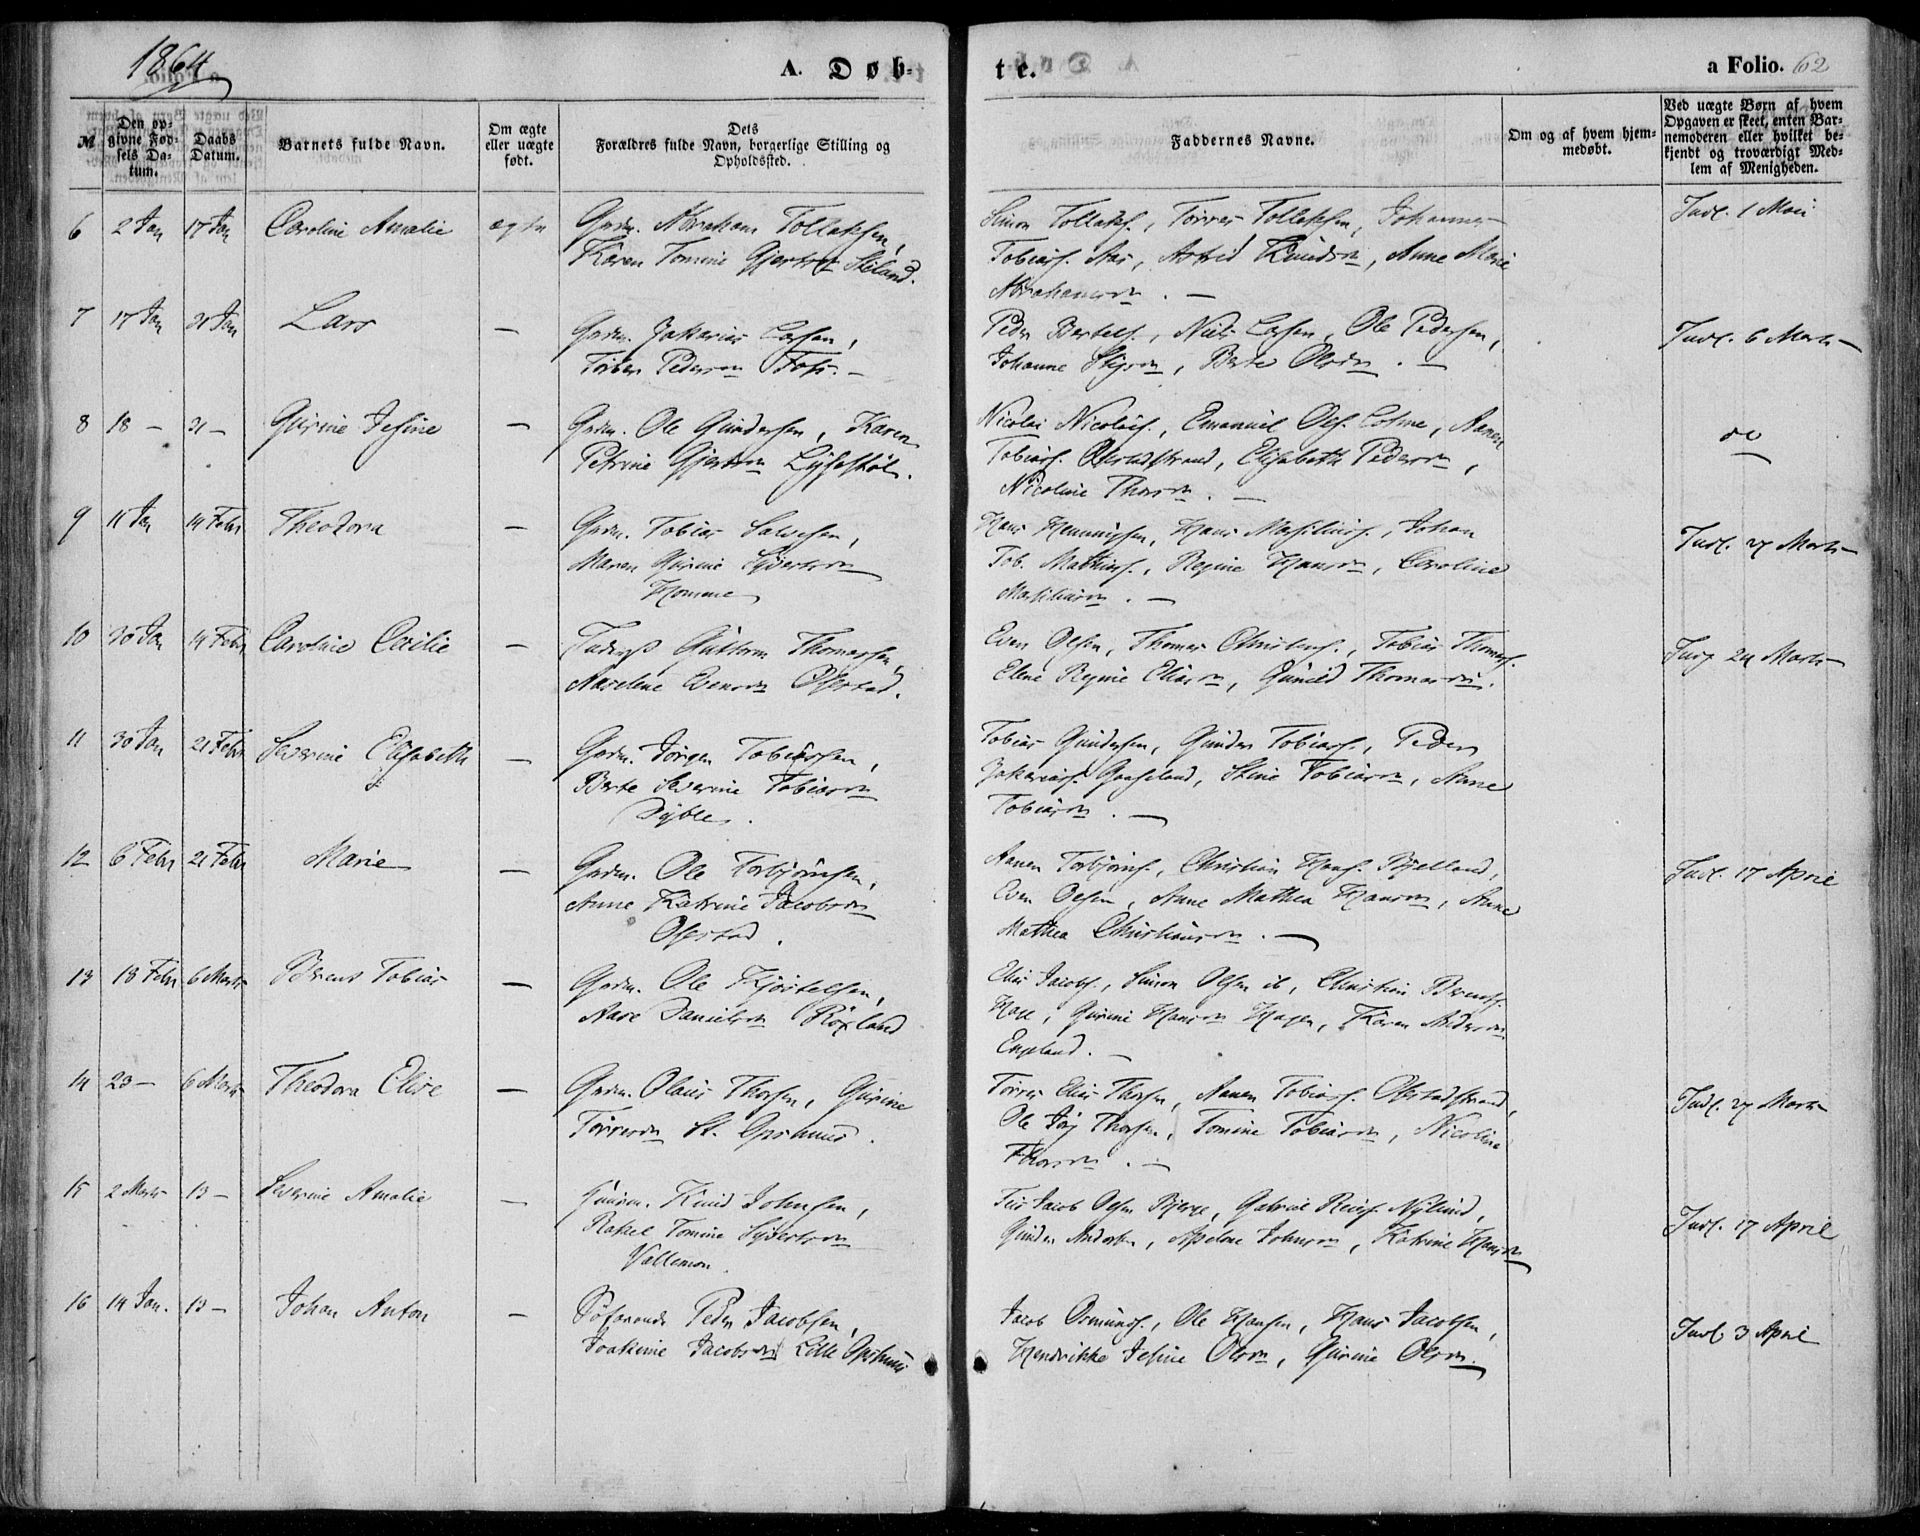 1864
A. Døb-
te.
a Folio. 62
№
Den opgivne Fødsels Datum.
Daabs Datum.
Barnets fulde Navn.
Om ægte eller uægte født.
Dets Forældres fulde Navn, borgerlige Stilling og Opholdssted.
Faddernes Navne.
Om og af hvem hjemmedøbt.
Ved uægte Børn af hvem Opgaven er skeet, enten Barnemoderen eller hvilket bekjendt og troværdigt Medlem af Menigheden.
6 2 Jan 17 Jan Caroline Amalie ægte Grdm. Abraham Tollaksen,
Karen Tomine Gjertsdr
Simon Tollaks., Torres Tollaksen, Johannes
Tobias. Aas, Astrid Knudsdr, Anne Marie
Abrahamsdr. —
Indl. 1 Mai
7 17 Jan 31 Jan Lars — Grdm. Zakarias Larsen,
Torber Pedersdr Foss. —
Peder Bertels., Niels Larsen, Ole Pedersen,
Johanne, Berte Olsdr. —
Indl. 6 Marts
8 18 — 31 — Gurine Jesine — Grdm. Ole Gundersen, Karen
Petrine Gjertsdr
Nicolai Nicolais., Emanuel Ols., Aanen
Tobias. Obrestadstrand, Elisabeth Pedersdr,
Nicoline Thorsdr. —
do
9 11 Jan 14 Febr Theodora — Grdm. Tobias Salvesen,
Maren Gurine Sivertsdr
Homme
Hans Henningsen, Hans, Johan
Tob. Mathias., Regine Hansdr, Caroline
Indl. 27 Marts
10 30 Jan 14 Febr Caroline Cecilie — Guttorm Thomassen,
Evensdr
Even Olsen, Thomas Christens., Tobias Thomas.
Elene Regine Eliasdr, Gunild Thomasdr.
24 Marts
11 30 Jan 21 Febr Severine Elisabeth — Grdm. Jørgen Tobiassen,
Berte Severine Tobiasdr
Tobias Gundersen, Gunder Tobias., Peder
Zakarias., Stine Tobiasdr, Anne
Tobiasdr. —
12 6 Febr 21 Febr Marie — Grdm. Ole Torbjörnsen,
Anne Katrine Jacobsdr
Aanen Torbjörns., Christian Hans. Bjelland,
Even Olsen, Anne Mathea Hansdr, Anne
Mathea Christiansdr. —
Indl. 17 April
13 18 Febr 6 Marts Bernt Tobias — Grdm. Ole Kjöstelsen,
Aase Danielsdr Röxland
Elias Jacobs., Simon Olsen ib, Christian Bernts.
Gurine Hansdr Hagen, Karen Andersdr
Engeland. —
14 23 — 6 Marts Theodora Elise — Grdm. Olaus Thorsen, Gurine
Törresdr St. Opshuus.
Torres Elias Thorsen, Aanen Tobias. Obrestadstrand,
Ole Thorsen, Tomine Tobiasdr, Nicoline
Thorsdr. —
Indl. 27 Marts
15 2 Marts 13 — Severine Amalie — Knud Johnsen,
Rakel Tomine Sivertsdr
Vallemon.
Jacob Olsen, Gabriel
Gunder, Johnsdr, Katrine Hansdr
Indl. 17 April
16 14 Jan. 13 — Johan Anton — Söfarende Peder Jacobsen,
Joakime Jacobsdr Lille Opshuus
Jacob Osmunds., Ole Hansen, Hans Jacobsen,
Hendrikke Jesine Olsdr, Gurine Olsdr.
Indl. 3 April